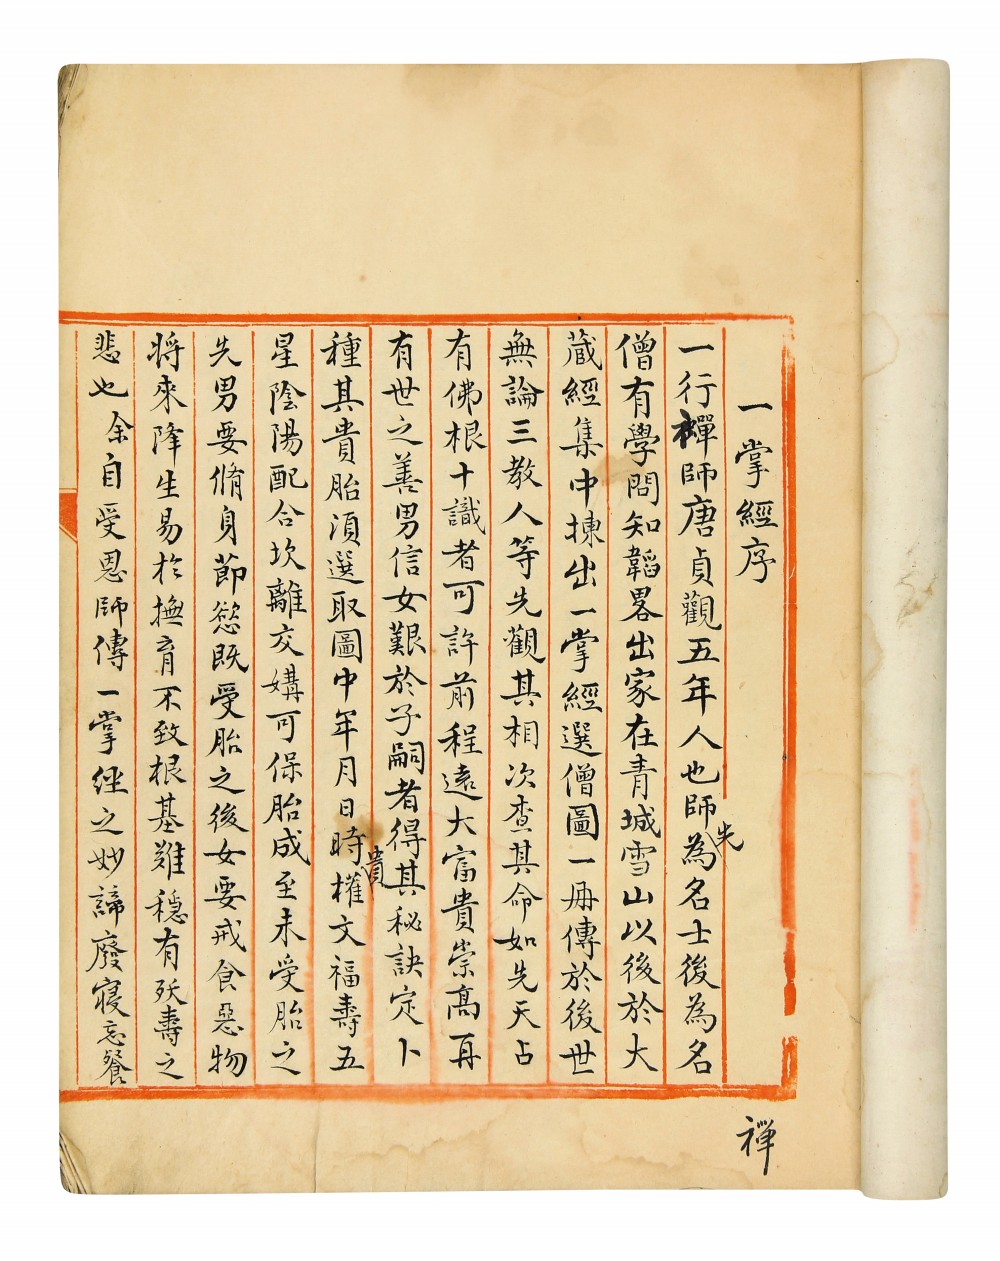 一掌經序
一行禪師唐貞觀五年人也師先為名士後為名
僧有學問知韜畧出家在青城雪山以後於大
藏經集中揀出一掌經選僧圖一册傳於後世
無論三教人等先觀其相次查其命如先天占
有佛根十識者可許前程遠大富貴崇高再
有世之善男信女艱於子嗣者得其秘訣定卜
種其貴胎須選取圖中年月日時貴權文福壽五
星陰陽配合坎離交媾可保胎成至未受胎之
先男要脩身節慾既受胎之後女要戒食惡物
將來降生易於撫育不致根基難穩有殀壽之
悲也余自受恩師傳一掌經之妙諦廢寢忘餐
禪